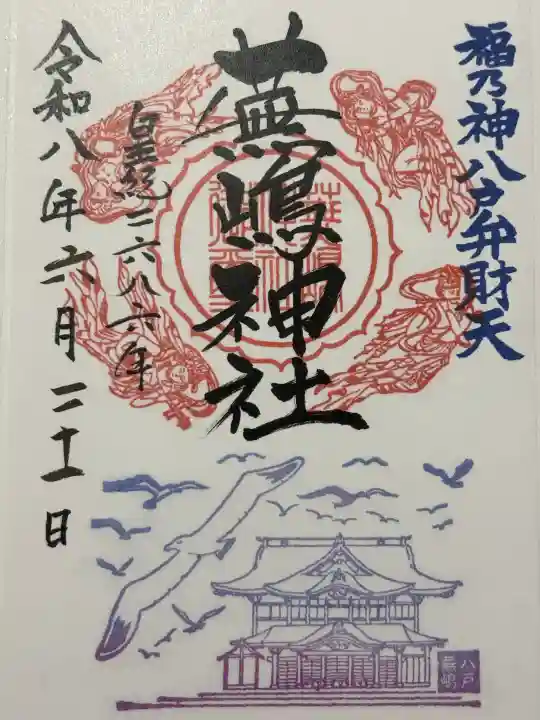 福乃神八戸弁財天
蕪嶋神社
皇紀二六八六年
令和八年六月二十一日
八戸
蕪嶋